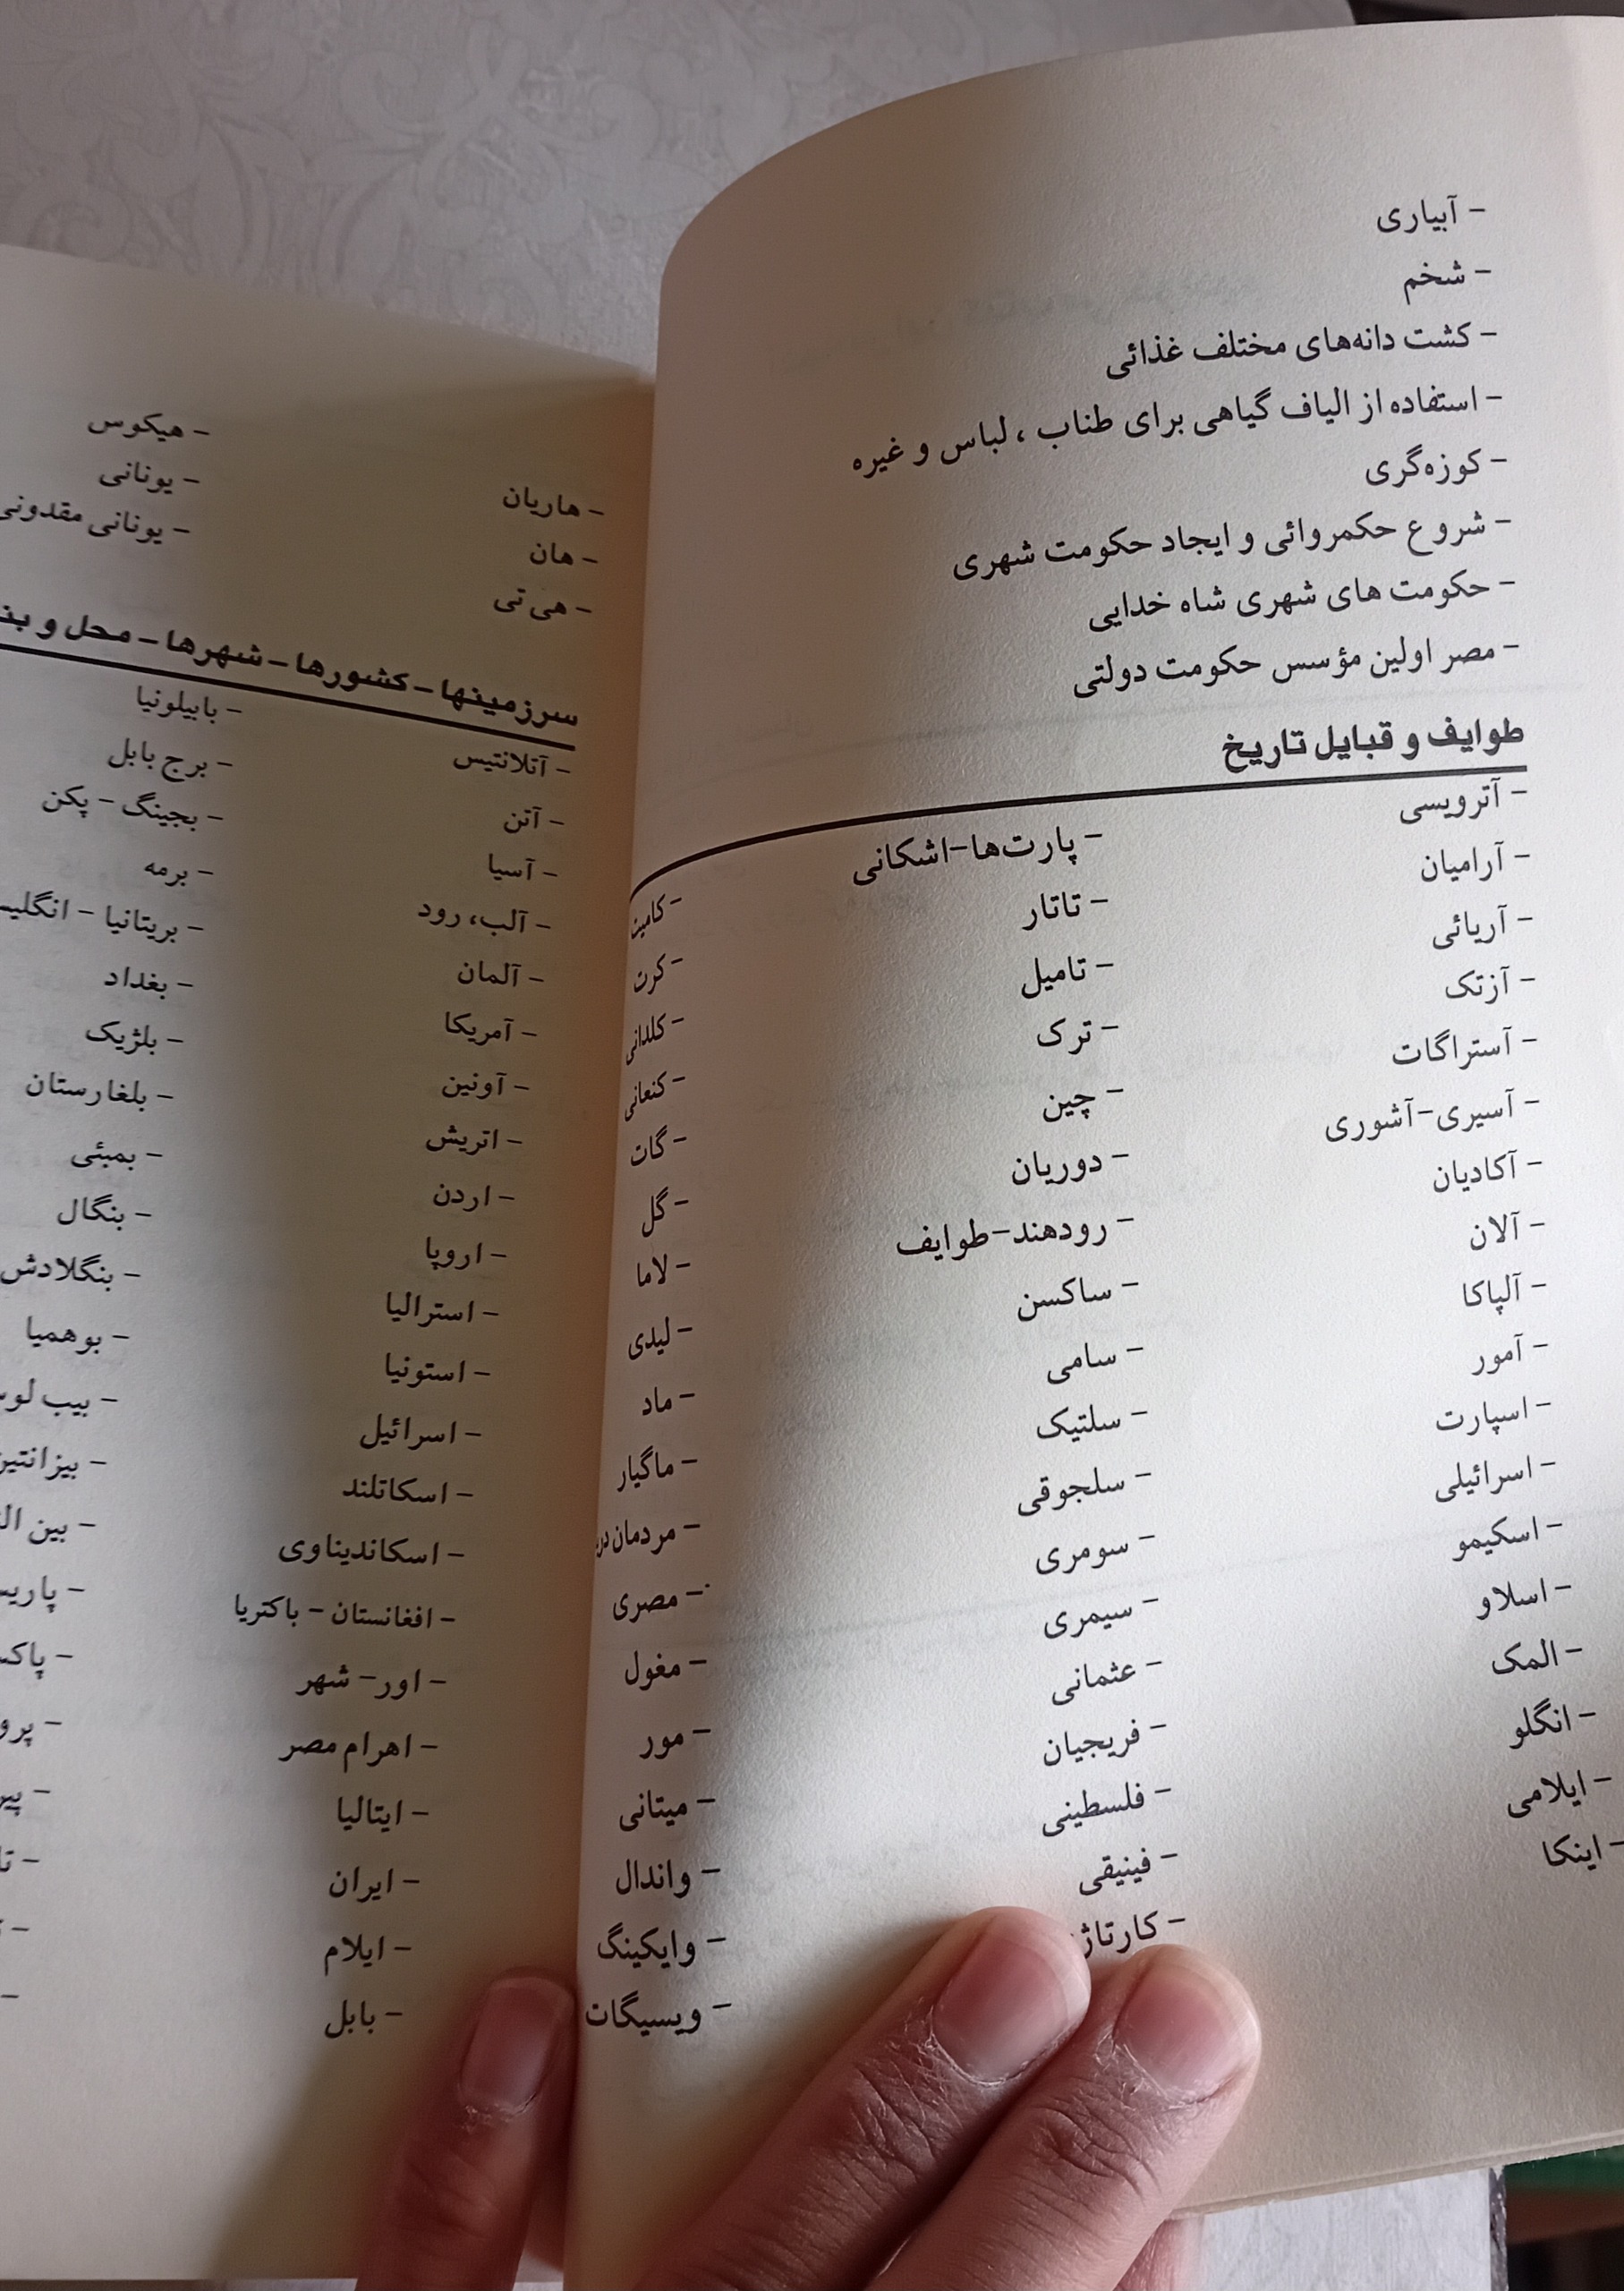 - آبیاری
- شخم
- کشت دانه‌های مختلف غذائی
- استفاده از الیاف گیاهی برای طناب ، لباس و غیره
- کوزه‌گری
- شروع حکمروائی و ایجاد حکومت شهری
- حکومت های شهری شاه خدایی
- مصر اولین مؤسس حکومت دولتی
طوایف و قبایل تاریخ
- آترویسی
- آرامیان
- آریائی
- آزتک
- آستراگات
- آسیری-آشوری
- آکادیان
- آلان
- آلپاکا
- آمور
- اسپارت
- اسرائیلی
- اسکیمو
- اسلاو
- المک
- انگلو
- ایلامی
- اینکا
- پارت‌ها-اشکانی
- تاتار
- تامیل
- ترک
- چین
- دوریان
- رودهند-طوایف
- ساکسن
- سامی
- سلتیک
- سلجوقی
- سومری
- سیمری
- عثمانی
- فریجیان
- فلسطینی
- فینیقی
- کارتاژ
- کرت
- کلدانی
- کنعانی
- گات
- گل
- لاما
- لیدی
- ماد
- ماگیار
- مردمان
- مصری
- مغول
- مور
- میتانی
- واندال
- وایکینگ
- ویسیگات
- هاریان
- هان
- هی تی
- هیکوس
- یونانی
- یونانی مقدونی
سرزمینها - کشورها - شهرها - محل و
- آتلانتیس
- آتن
- آسیا
- آلب، رود
- آلمان
- آمریکا
- آونین
- اتریش
- اردن
- اروپا
- استرالیا
- استونیا
- اسرائیل
- اسکاتلند
- اسکاندیناوی
- افغانستان - باکتریا
- اور- شهر
- اهرام مصر
- ایتالیا
- ایران
- ایلام
- بابل
- بابیلونیا
- برج بابل
- بجینگ - پکن
- برمه
- بریتانیا -
- بغداد
- بلژیک
- بلغارستان
- بمبئی
- بنگال
- بنگلادش
- بوهمیا
- بیب
- بین